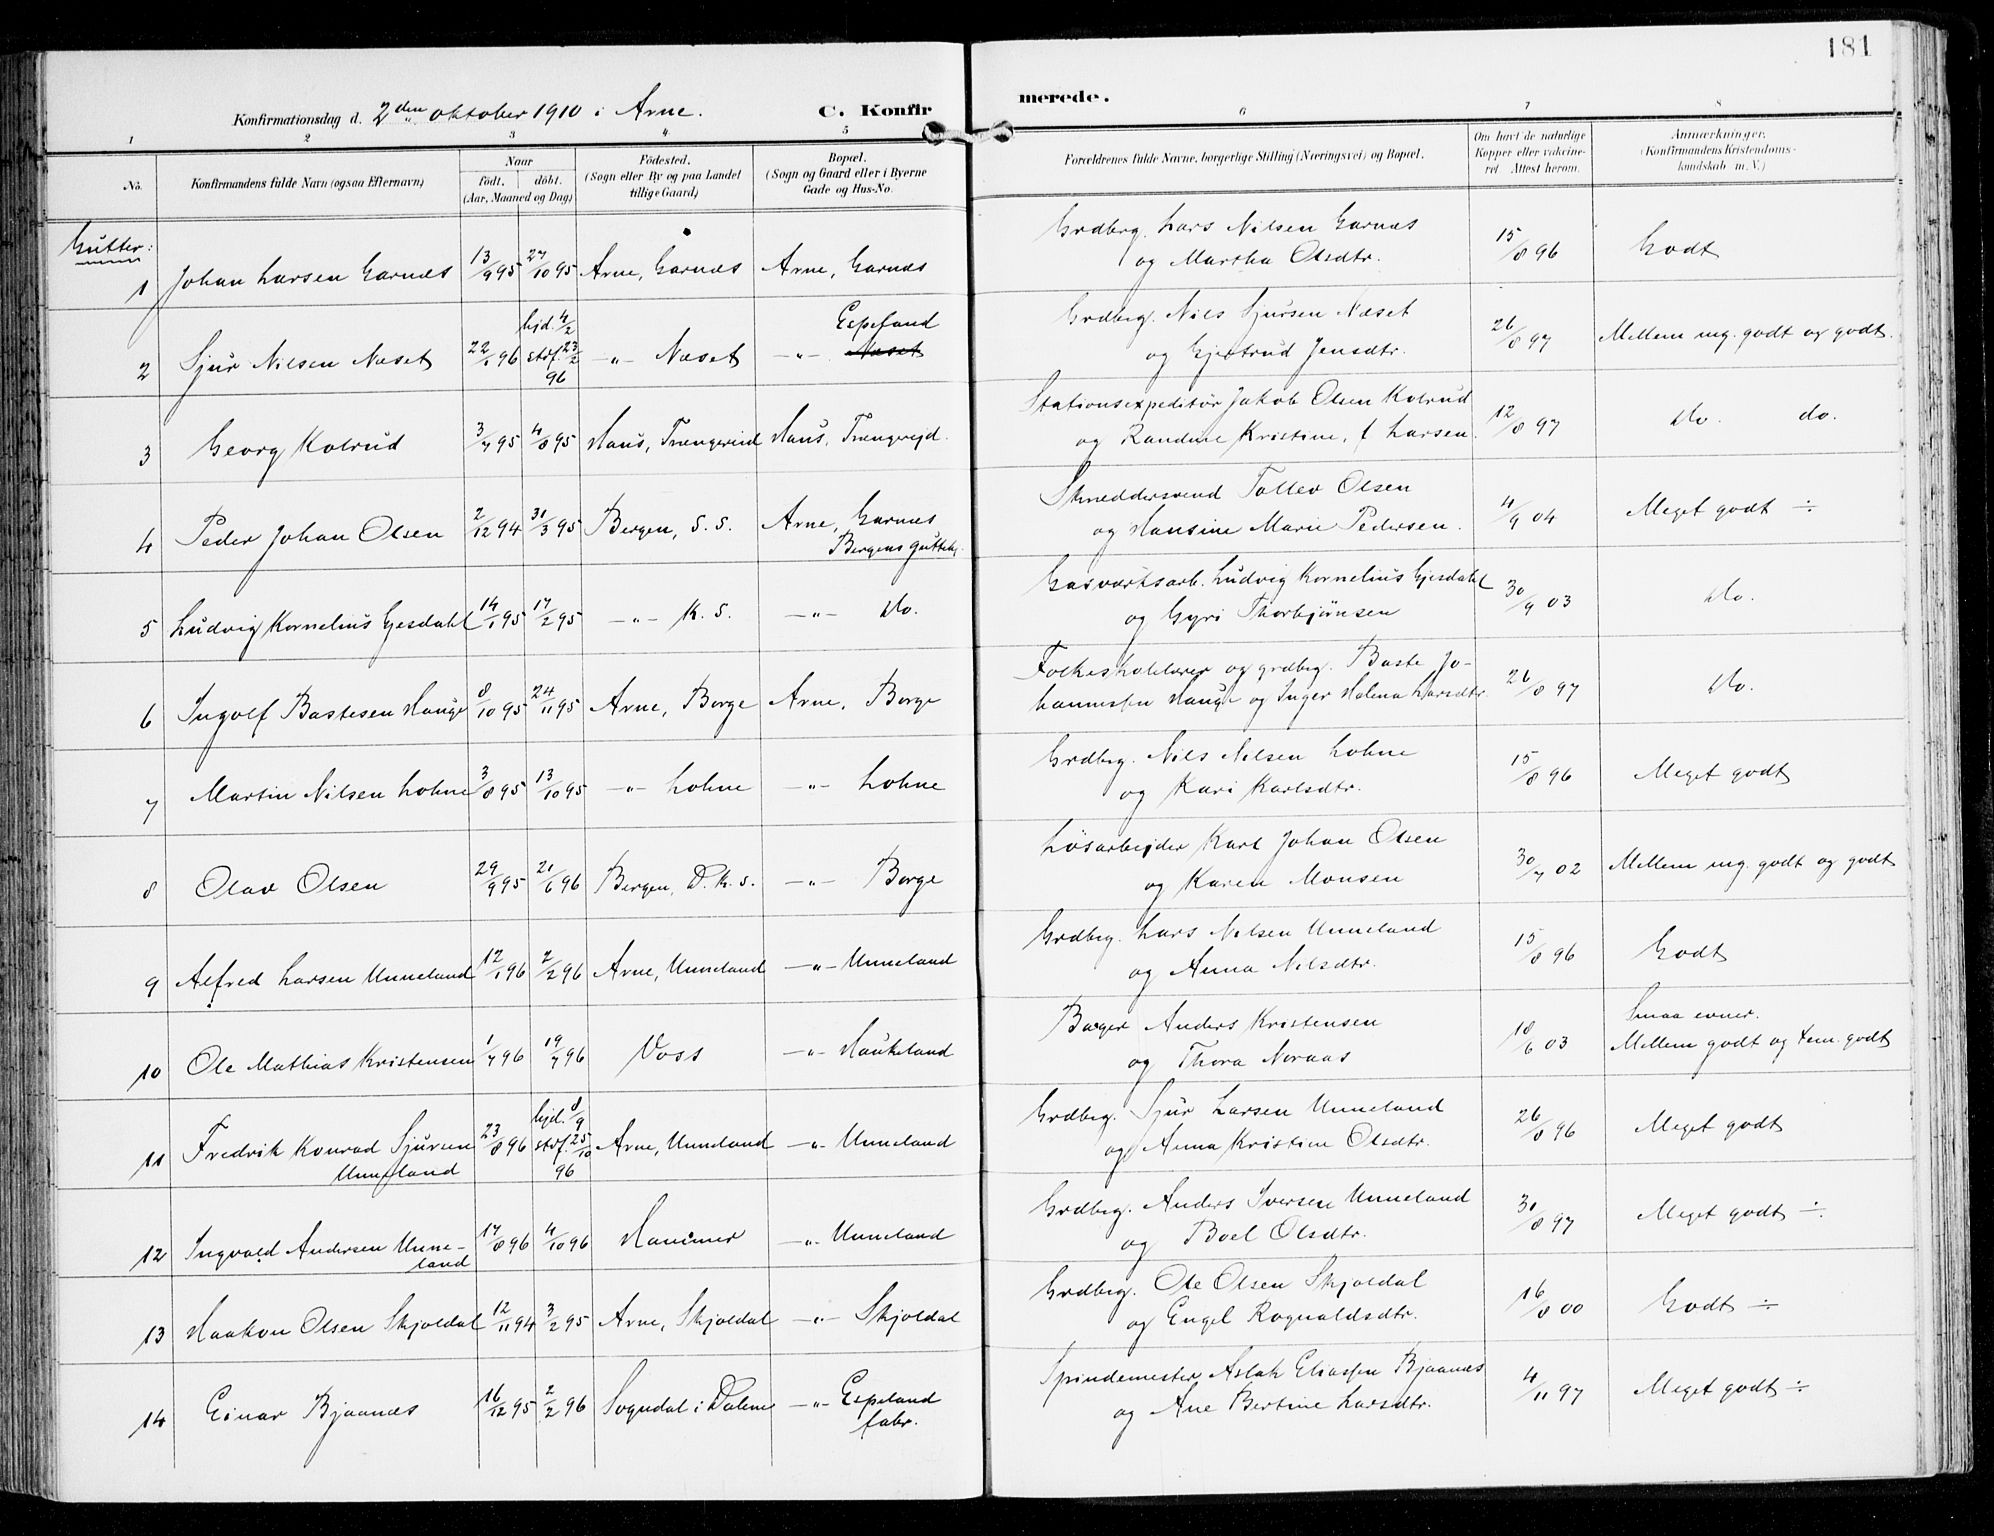 181
Konfirmationsdag d. 2den oktober 1910 i Arne. C. Konfirmerede.
1 2 3 4 5 6 7 8
No. Konfirmandens fulde Navn (ogsaa Efternavn) Naar Födt. döbt. (Aar, Maaned og Dag) Födested. (Sogn eller By og paa Landet tillige Gaard) Bopæl. (Sogn og Gaard eller i Byerne Gade og Hus-No. Forældrenes fulde Navne, borgerlige Stilling (Næringsvei) og Bopæl. Om havt de naturlige Kopper eller vakcineret. Attest herom. Anmærkninger. (Konfirmandens Kristendomskundskab m. V.)
Gutter:
1 Johan Larsen Garnæs 13/9 95 27/10 95 Arne, Garnæs Arne, Garnæs Grdbrg. Lars Nilsen Garnæs og Martha Olsdtr. 15/8 96 Godt
2 Sjur Nilsen Næset 22/1 96 hjd. 4/2 stdf. 23/2 96 -"- Næset -"- Næset Espeland Grdbrg. Nils Sjursen Næset og Gjertrud Jensdtr. 26/8 97 Mellem mg. godt og godt.
3 Georg Kolrud 3/7 95 4/8 95 Haus, Trengereid Haus, Trengereid. Stationsexpeditör Jakob Olsen Kolrud og Randine Kristine, f. Larsen. 12/8 97 do. do.
4 Peder Johan Olsen 2/12 94 31/3 95 Bergen, S. S. Arne, Garnæs Bergens guttehj. Skreddersvend Tollev Olsen og Hansine Marie Pedersen. 4/9 04 Meget godt ÷
5 Ludvig Kornelius Gjesdahl 14/1 95 17/2 95 -"- K. S. -"- do. Gasværksarb. Ludvig Kornelius Gjesdahl og Gyri Thorbjönsen 30/9 03 do.
6 Ingolf Bastesen Hauge 8/10 95 24/11 95 Arne, Borge Arne, Borge Folkeskolelærer og grdbrg. Baste Johannessen Hauge og Inger Malena Larsdtr. 26/8 97 do.
7 Martin Nilsen Lohne 3/8 95 13/10 95 -"- Lohne -"- Lohne Grdbrg. Nils Nilsen Lohne og Kari Karlsdtr. 15/8 96 Meget godt
8 Olav Olsen 29/9 95 21/6 96 Bergen, D. k. s. -"- Borge Løsarbejder Karl Johan Olsen og Karen Monsen 30/7 02 Mellem mg. godt og godt
9 Alfred Larsen Unneland 12/1 96 2/2 96 Arne, Unneland -"- Unneland Grdbrg. Lars Nilsen Unneland og Anna Nilsdtr. 15/8 96 Godt
10 Ole Mathias Kristensen 1/7 96 19/7 96 Voss -"- Haukeland Bager Anders Kristensen og Thora Noraas 18/6 03 Smaa evner. Mellem godt og tem. godt
11 Fredrik Konrad Sjursen Unneland 23/8 96 hjd. 8/9 stdf. 25/10 96 Arne, Unneland -"- Unneland Grdbrg. Sjur Larsen Unneland og Anna Kristine Olsdtr. 26/8 96 Meget godt
12 Ingvald Andersen Unneland 17/8 96 4/10 96 Hammer -"- Unneland Grdbrg. Anders Iversen Unneland og Boel Olsdtr. 30/8 97 Meget godt ÷
13 Haakon Olsen Skjoldal 12/11 94 3/2 95 Arne, Skjoldal -"- Skjoldal Grdbrg. Ole Olsen Skjoldal og Engel Rognaldsdtr. 16/8 00 Godt ÷
14 Einar Bjaanæs 16/12 95 2/2 96 Sogndal i Dalene -"- Espeland fabr. Spindemester Aslak Eliassen Bjaanæs og Ane Bertine Larsdtr. 4/11 97 Meget godt ÷